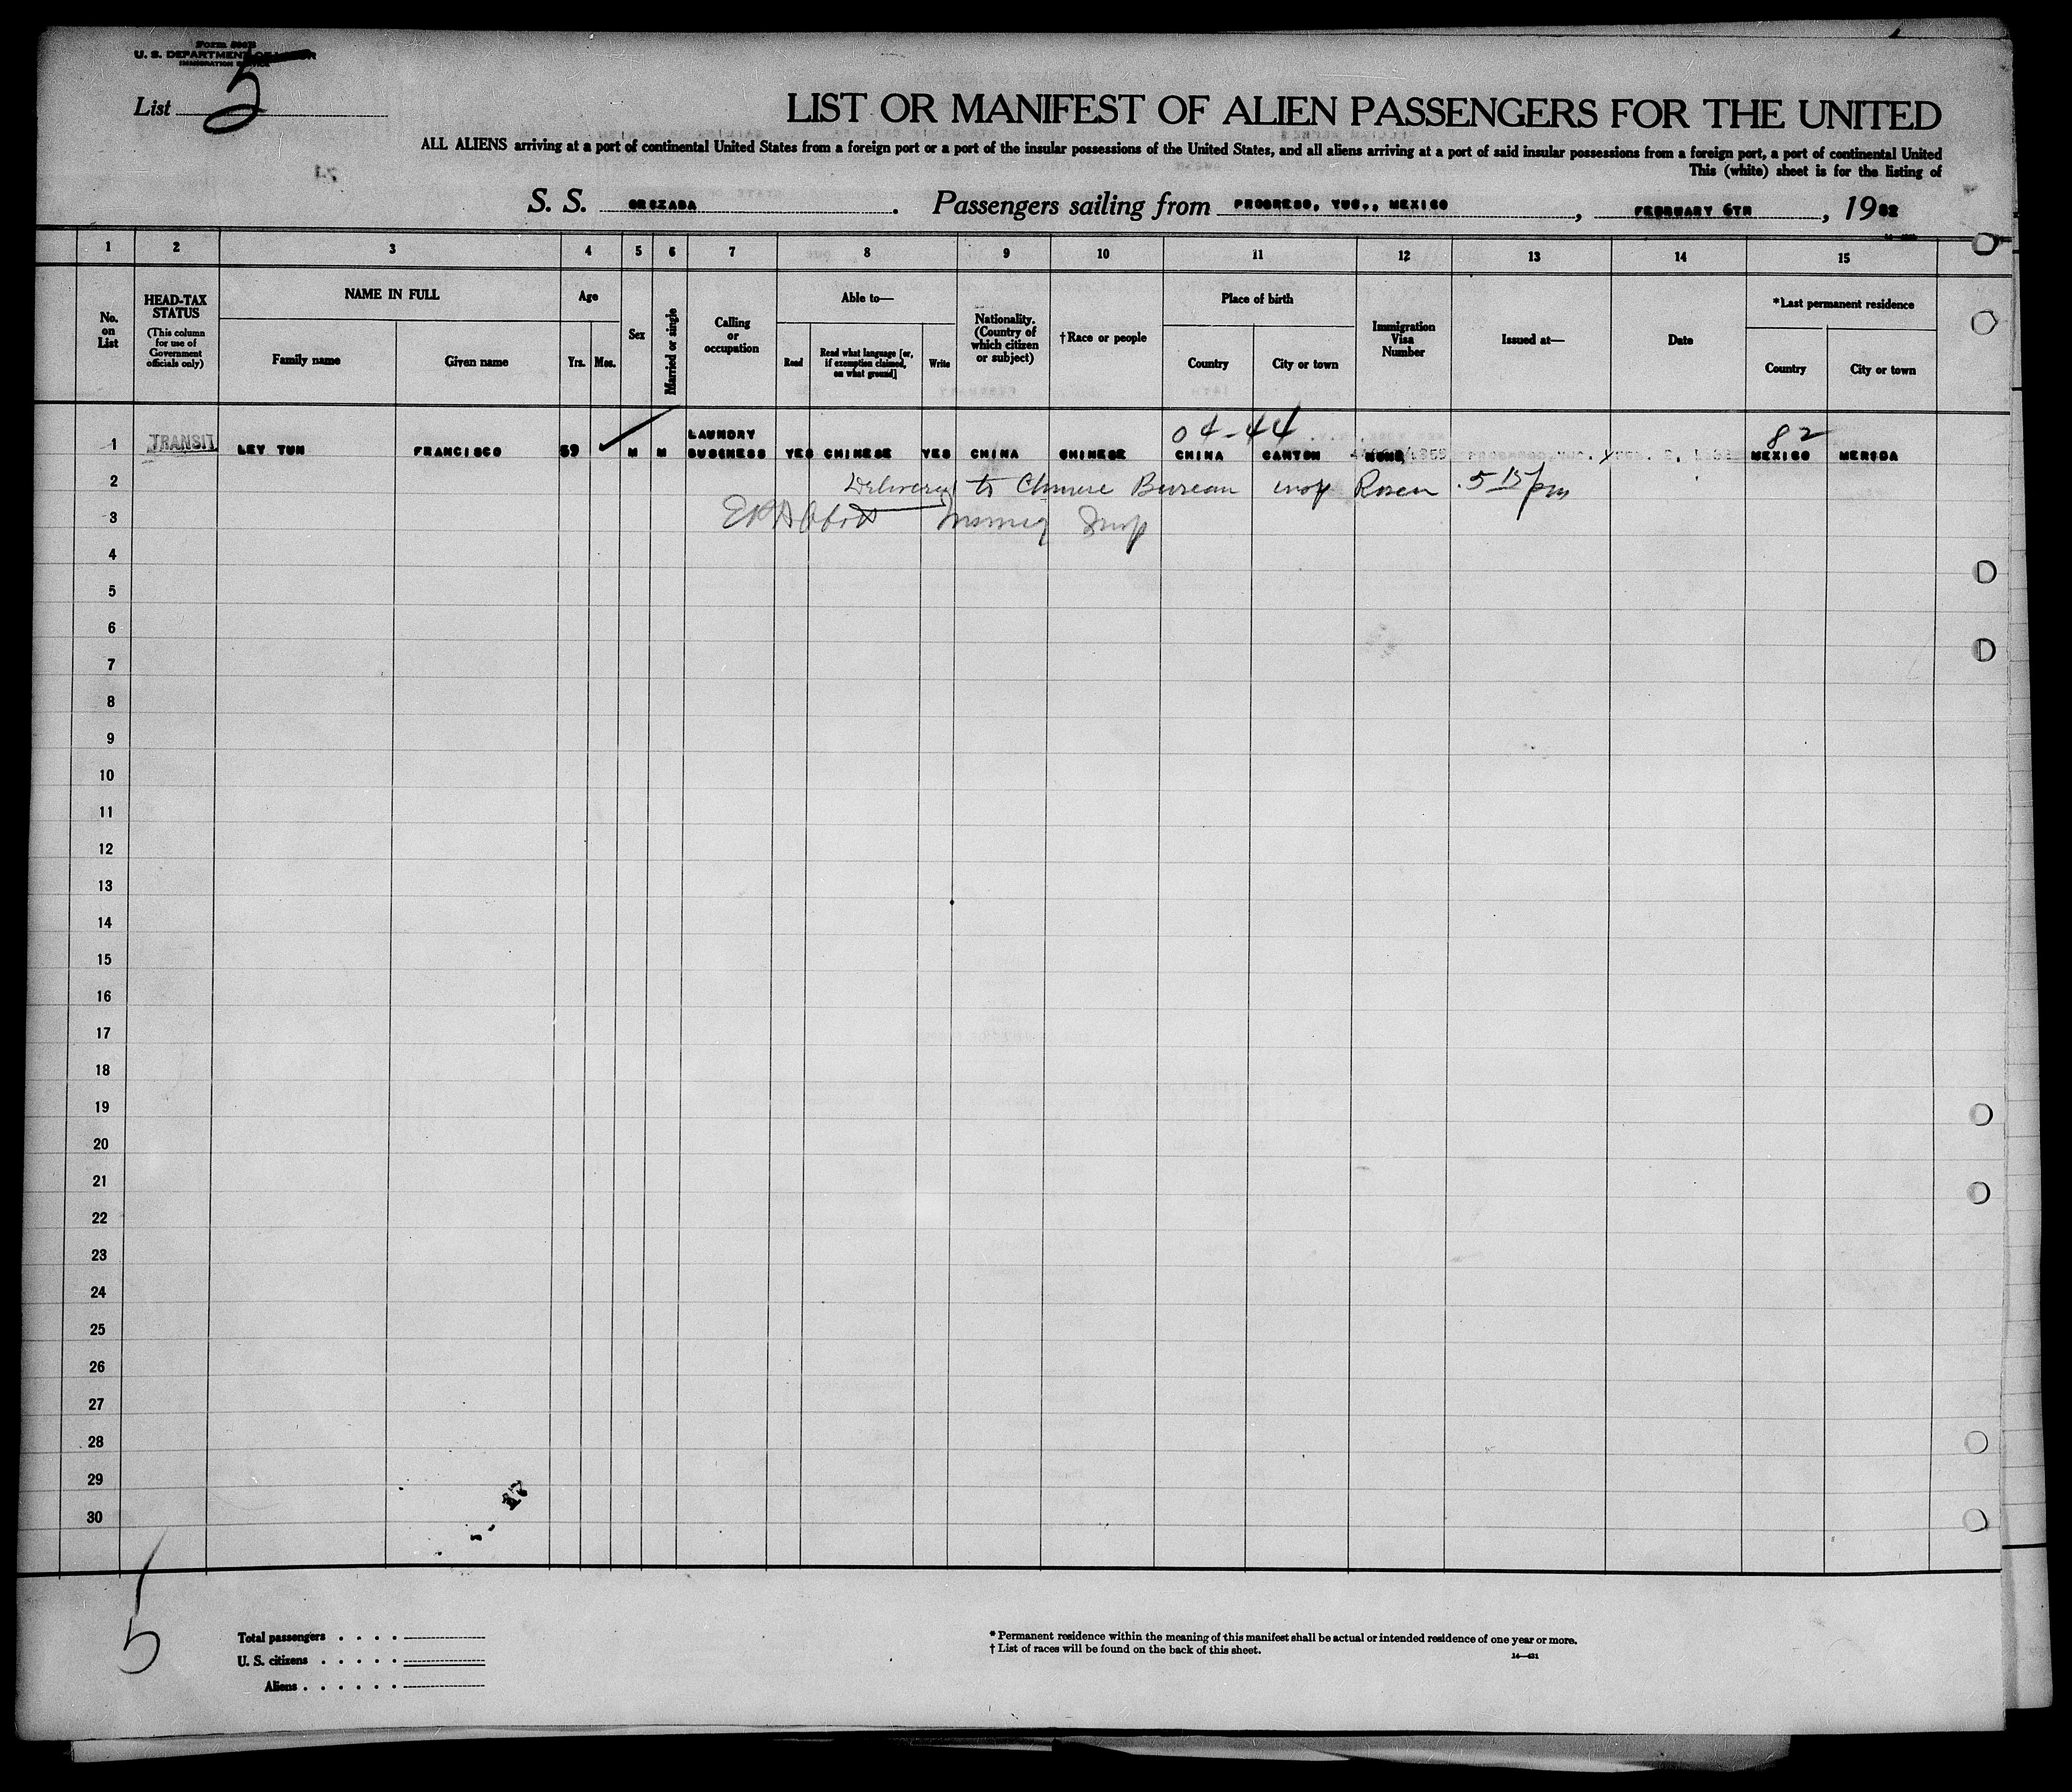 Form 500B
U. S. DEPARTMENT OF LABOR
IMMIGRATION SERVICE
List 5
LIST OR MANIFEST OF ALIEN PASSENGERS FOR THE UNITED
ALL ALIENS arriving at a port of continental United States from a foreign port or a port of the insular possessions of the United States, and all aliens arriving at a port of said insular possessions from a foreign port, a port of continental United
This (white) sheet is for the listing of
S. S. ORIZABA. Passengers sailing from PROGRESO, YUC., MEXICO, FEBRUARY 6TH, 1932
1 2 3 4 5 6 7 8 9 10 11 12 13 14 15
No. on List
HEAD-TAX STATUS
(This column for use of Government officials only)
NAME IN FULL
Family name
Given name
Age
Yrs. Mos.
Sex
Married or single
Calling or occupation
Able to—
Read
Read what language [or, if exemption claimed, on what ground]
Write
Nationality. (Country of which citizen or subject)
†Race or people
Place of birth
Country
City or town
Immigration Visa Number
Issued at—
Date
*Last permanent residence
Country
City or town
04-44
82
1 TRANSIT LEY TUN FRANCISCO 59 M M LAUNDRY BUSINESS YES CHINESE YES CHINA CHINESE CHINA CANTON NONE MEXICO MERIDA
2 Delivered to Chinese Bureau insp Rosen 5 15 pm
3 Immig Insp
4
5
6
7
8
9
10
11
12
13
14
15
16
17
18
19
20
21
22
23
24
25
26
27
28
29
30
17
5
Total passengers . . . .
U. S. citizens . . . . .
Aliens . . . . . .
* Permanent residence within the meaning of this manifest shall be actual or intended residence of one year or more.
† List of races will be found on the back of this sheet.
14—431